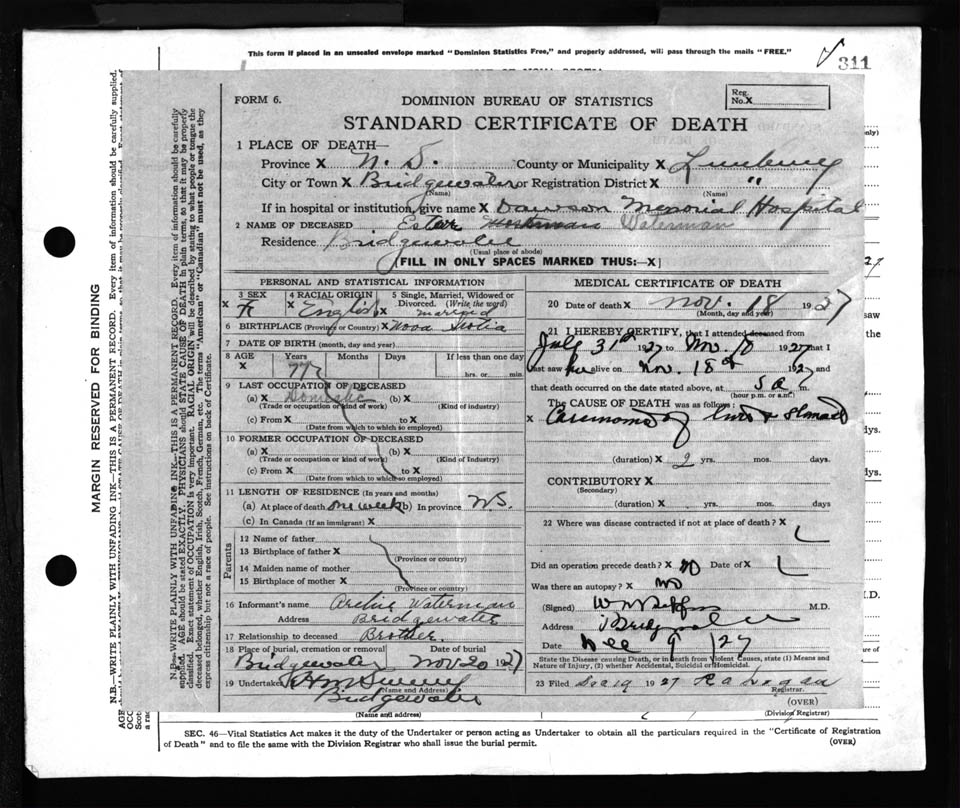 This form if placed in an unsealed envelope marked "Dominion Statistics Free," and properly addressed, will pass through the mails "FREE."
311
FORM 6.
DOMINION BUREAU OF STATISTICS
Reg. No. X
STANDARD CERTIFICATE OF DEATH
1 PLACE OF DEATH—
Province X N.S. County or Municipality X Lunenburg
City or Town X Bridgewater or Registration District X "
(Name) (Name)
If in hospital or institution, give name X Dawson Memorial Hospital
2 NAME OF DECEASED Ester Waterman
Residence Bridgewater
(Usual place of abode)
(FILL IN ONLY SPACES MARKED THUS:—X)
PERSONAL AND STATISTICAL INFORMATION
3 SEX X F
4 RACIAL ORIGIN X English
5 Single, Married, Widowed or Divorced. (Write the word) X married
6 BIRTHPLACE (Province or Country) X Nova Scotia
7 DATE OF BIRTH (month, day and year)
8 AGE X Years Months Days If less than one day
hrs. or min.
9 LAST OCCUPATION OF DECEASED
(a) X Domestic (b) X
(Trade or occupation or kind of work) (Kind of industry)
(c) From X to X
(Date from which to which so employed)
10 FORMER OCCUPATION OF DECEASED
(a) X (b) X
(Trade or occupation or kind of work) (Kind of Industry)
(c) From X to X
(Date from which to which so employed)
11 LENGTH OF RESIDENCE (In years and months)
(a) At place of death one week (b) In province N.S.
(c) In Canada (If an immigrant) X
Parents
12 Name of father
13 Birthplace of father X
(Province or country)
14 Maiden name of mother X
15 Birthplace of mother X
(Province or country)
16 Informant's name Archie Waterman
Address Bridgewater
17 Relationship to deceased Brother
18 Place of burial, cremation or removal Date of burial
Bridgewater Nov 20 1927
19 Undertaker
(Name and Address)
Bridgewater
MEDICAL CERTIFICATE OF DEATH
20 Date of death X Nov. 18 1927
(Month, day and year)
21 I HEREBY CERTIFY, that I attended deceased from
July 31st 1927 to Nov. 18 1927 that I
last saw her alive on Nov. 18th 1927 and
that death occurred on the date stated above, at 5 a m.
(hour p.m. or a.m.)
The CAUSE OF DEATH was as follows:
X Carcinoma of liver & stomach
(duration) X 2 yrs. mos. days.
CONTRIBUTORY X
(Secondary)
(duration) X yrs. mos. days.
22 Where was disease contracted if not at place of death? X
Did an operation precede death? X no Date of X
Was there an autopsy? X no
(Signed) M.D.
Address Bridgewater
Date Dec 9 / 27
State the Disease causing Death, or in death from Violent Causes, state (1) Means and
Nature of Injury, (2) whether Accidental, Suicidal or Homicidal.
23 Filed 1927
Registrar.
(OVER)
(Name and address) (Division Registrar)
SEC. 46—Vital Statistics Act makes it the duty of the Undertaker or person acting as Undertaker to obtain all the particulars required in the "Certificate of Registration
of Death" and to file the same with the Division Registrar who shall issue the burial permit.
(OVER)
MARGIN RESERVED FOR BINDING
N.B.—WRITE PLAINLY WITH UNFADING INK—THIS IS A PERMANENT RECORD. Every item of information should be carefully supplied.
N.B.—WRITE PLAINLY WITH UNFADING INK—THIS IS A PERMANENT RECORD. Every item of information should be carefully
supplied. AGE should be stated EXACTLY. PHYSICIANS should state CAUSE OF DEATH in plain terms, so that it may be properly
classified. Exact statement of OCCUPATION is very important. RACIAL ORIGIN will be described by stating to what people or tongue the
deceased belonged, whether English, Irish, Scotch, French, German, etc. The terms "American" or "Canadian" must not be used, as they
express citizenship but not a race of people. See instructions on back of Certificate.